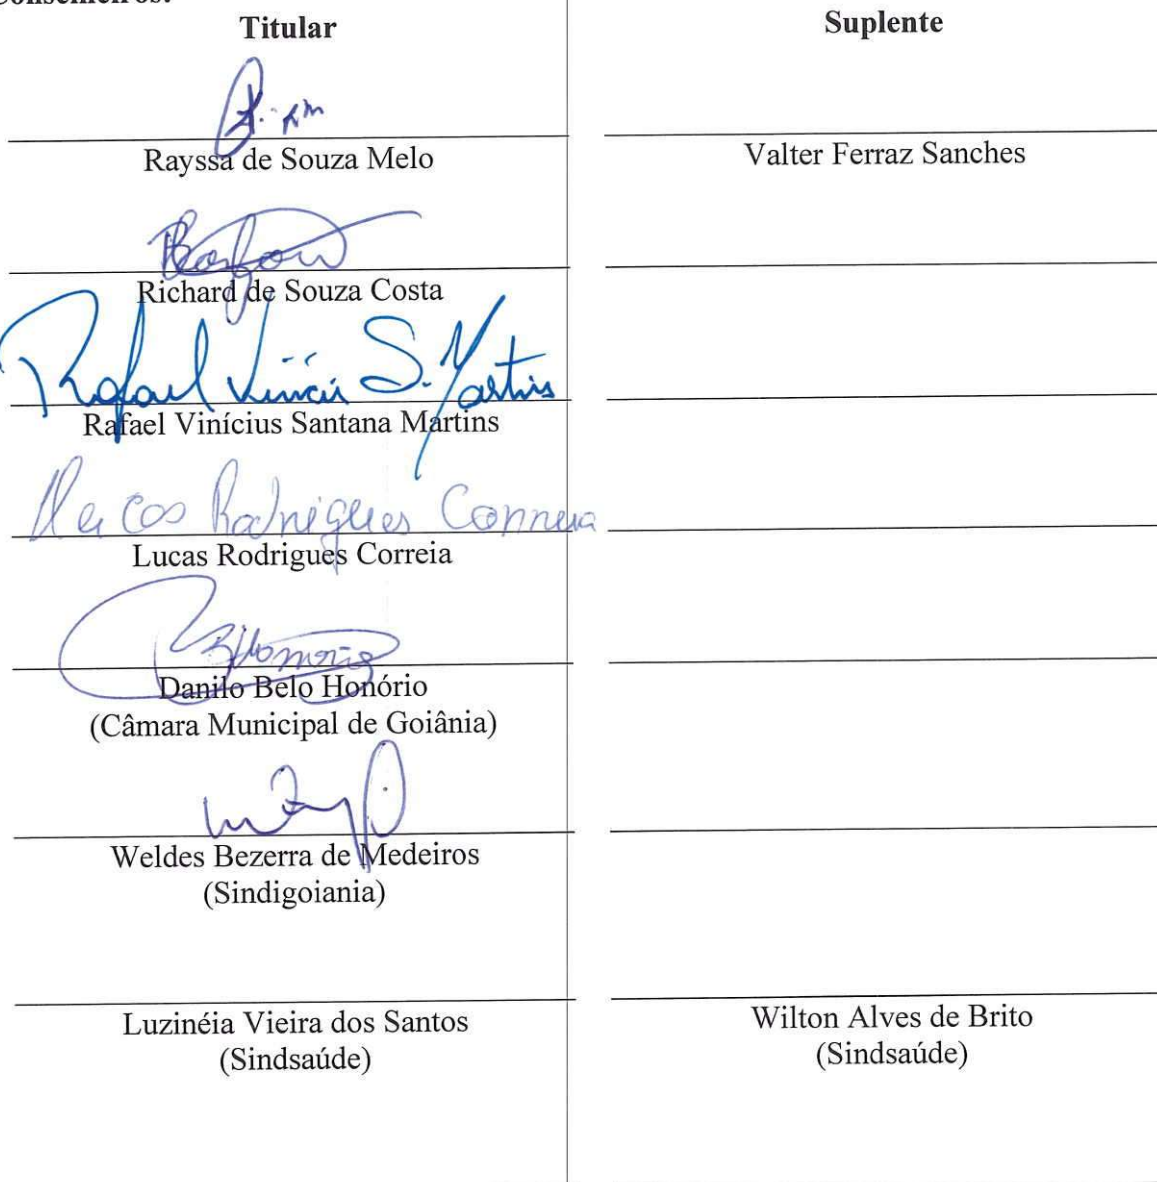 Conselheiros:
Titular
Suplente
Rayssa de Souza Melo
Valter Ferraz Sanches
Richard de Souza Costa
Rafael Vinícius S. Martins
Rafael Vinícius Santana Martins
Lucas Rodrigues Correia
Lucas Rodrigues Correia
Danilo Belo Honório
(Câmara Municipal de Goiânia)
Weldes Bezerra de Medeiros
(Sindigoiania)
Luzinéia Vieira dos Santos
(Sindsaúde)
Wilton Alves de Brito
(Sindsaúde)